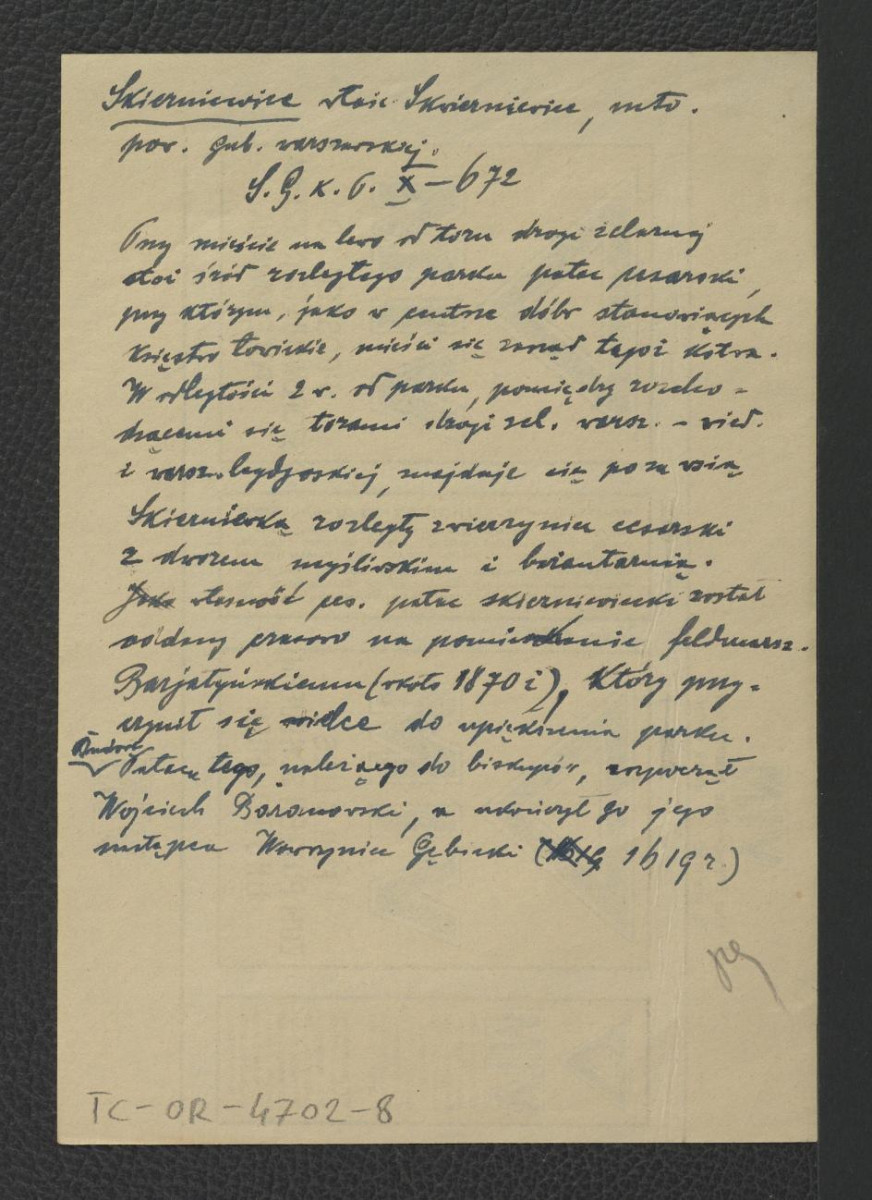 Skierniewice właśc. Skwierniewice, mto.
pow. gub. warszawskiej.
S. G. K. P. X – 672
Przy mieście na lewo od toru drogi żelaznej
stoi śród rozległego parku pałac cesarski,
przy którym, jako w centrze dóbr stanowiących
Księstwo Łowickie, mieści się zarząd tegoż Kstwa.
W odległości 2 w. od parku, pomiędzy rozcho-
dzącemi się torami drogi żel. warsz. – wied.
i warsz. bydgoskiej, znajduje się poza wsią
Skierniewką rozległy zwierzyniec cesarski
z dworem myśliwskim i bażantarnią.
Jako własność ces. pałac skierniewicki został
oddany czasowo na pomieszkanie feldmarsz.
Barjatyńskiemu (około 1870 r.), który przy-
czynił się wielce do upiększenia parku.
Budowę
Pałacu tego, należącego do biskupów, rozpoczął
Wojciech Baranowski, a ukończył go jego
następca Wawrzyniec Gębicki (1619 r.)
TC-OR-4702-8